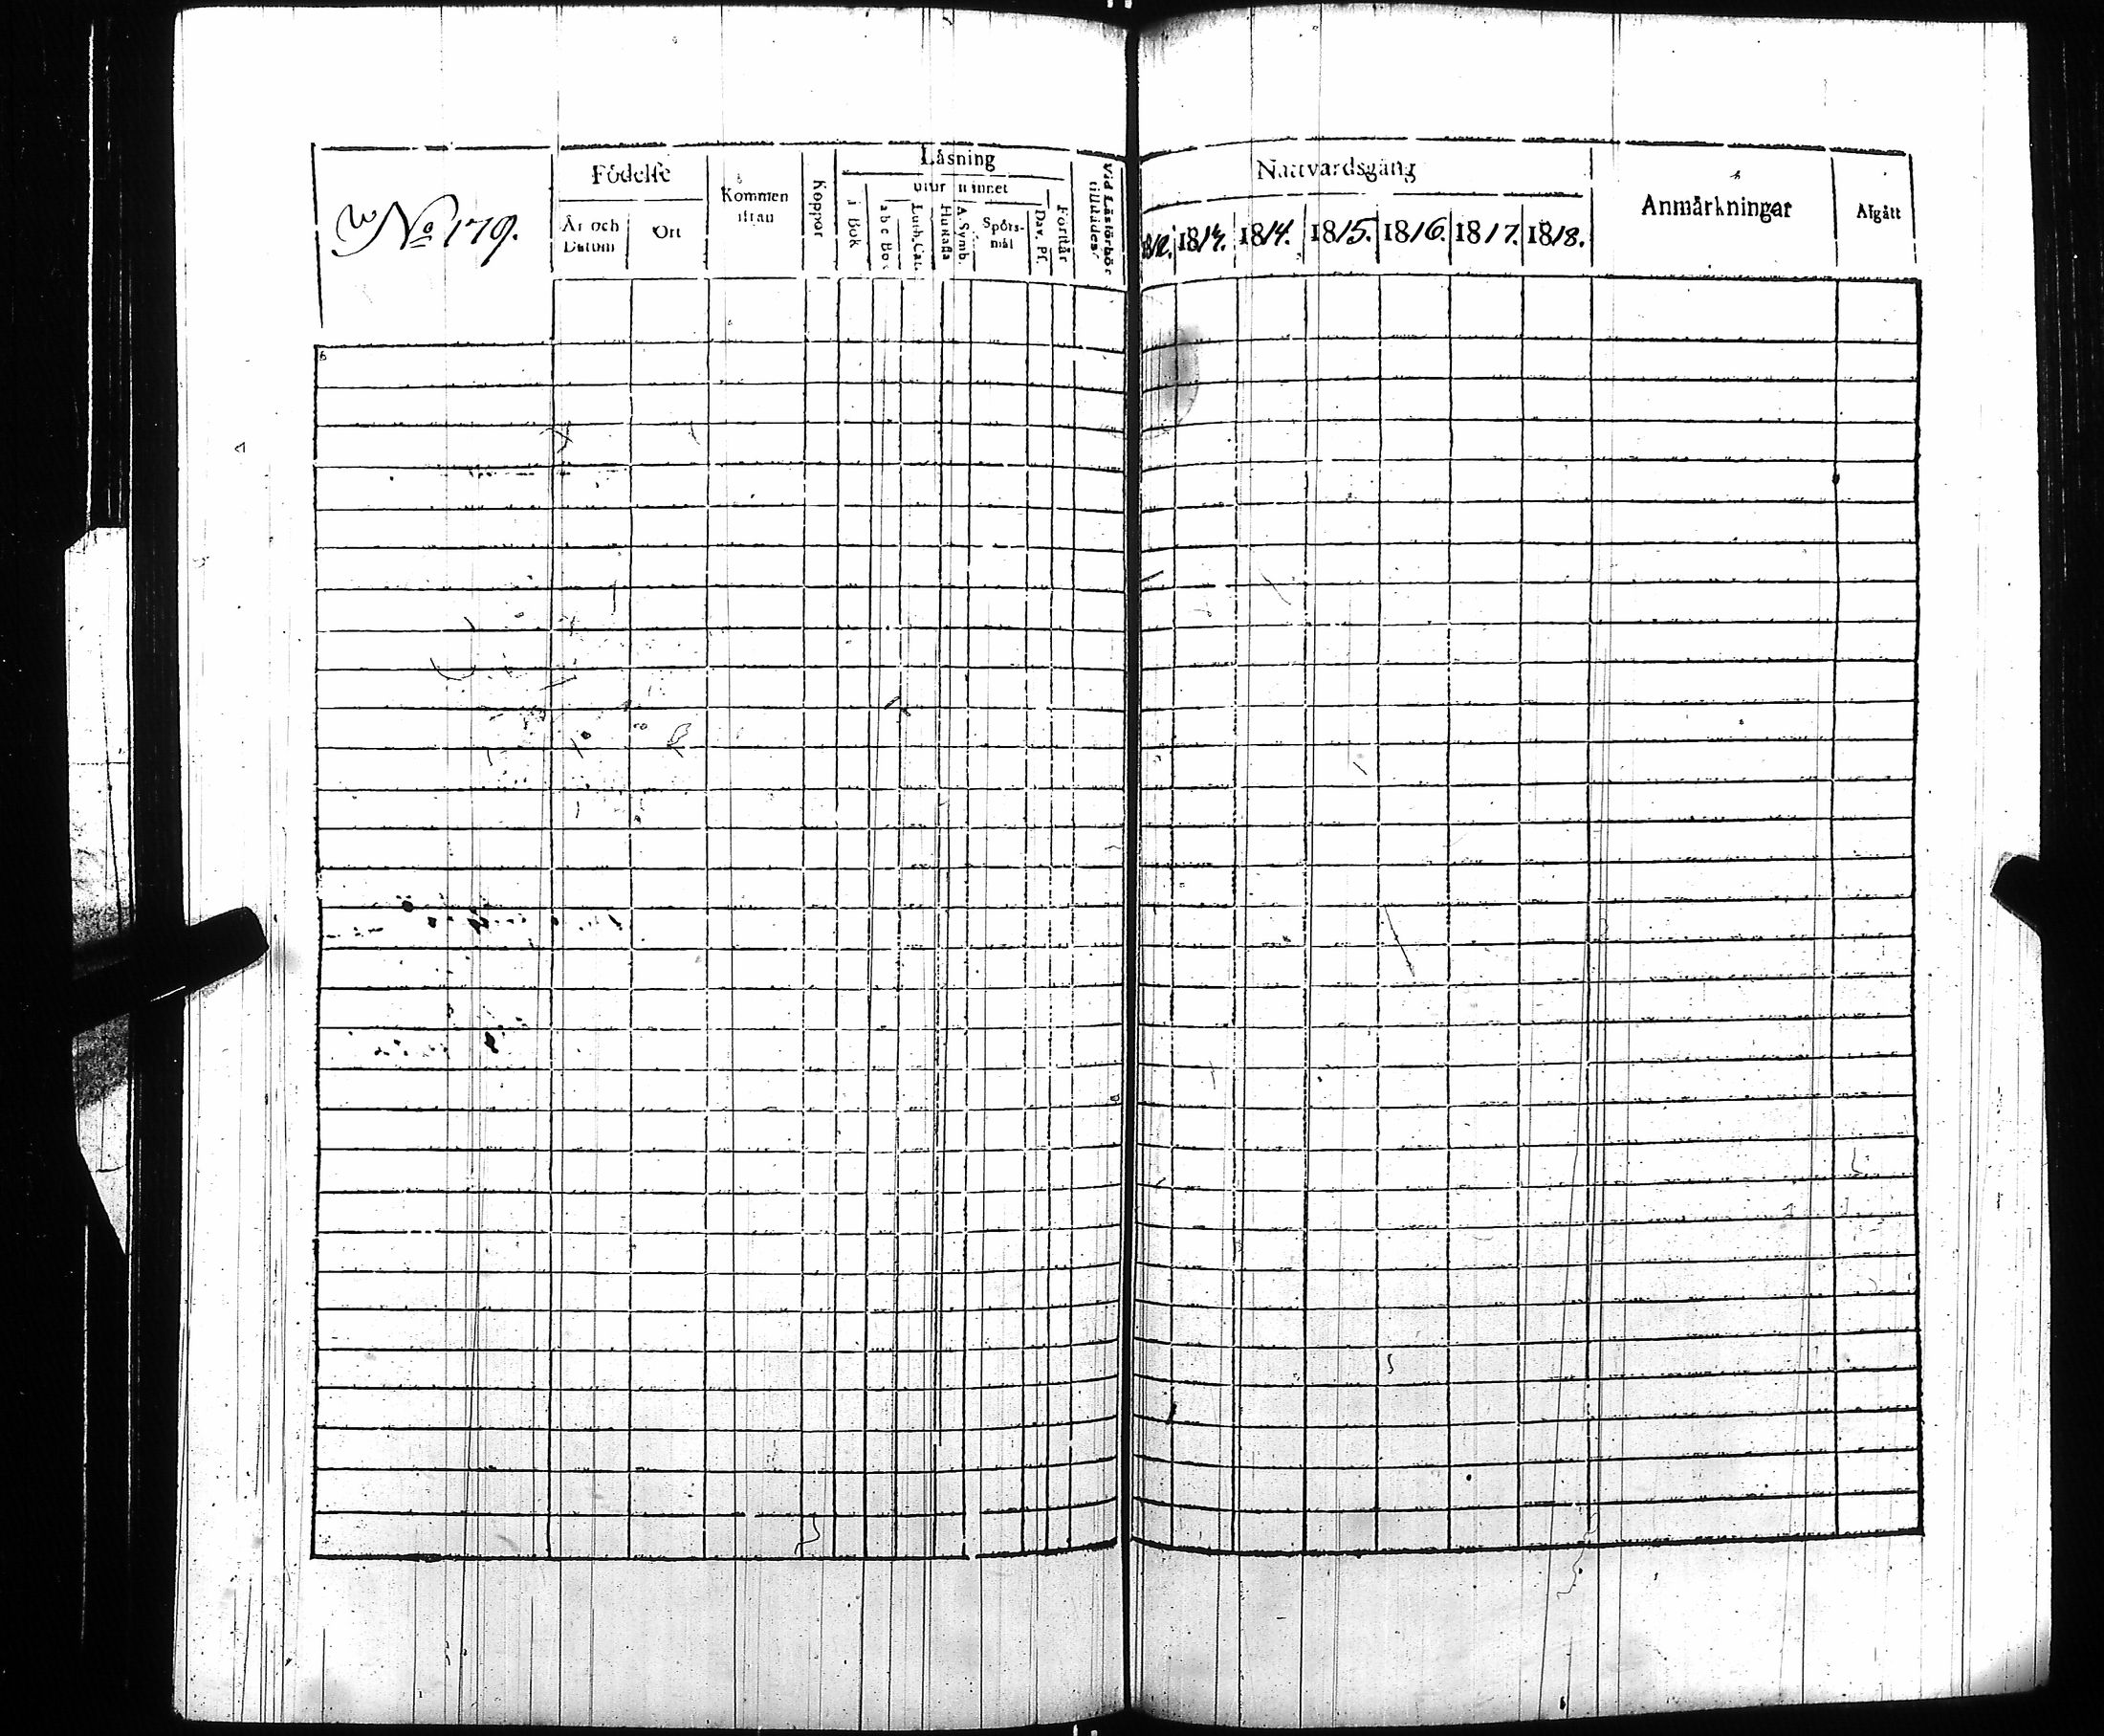 No 179.
Födelse
År och
Datum
Ort
Kommen
ifrån
Koppor
Läsning
utur minnet
i Bok
a b c Bok
Luth. Cat.
Hustafla
A. Symb.
Spörs-
mål
Dav. Ps.
Förstår
Vid Läsförhör
tillstädes
Nattvardsgång
1812. 1813. 1814. 1815. 1816. 1817. 1818.
Anmärkningar
Afgått